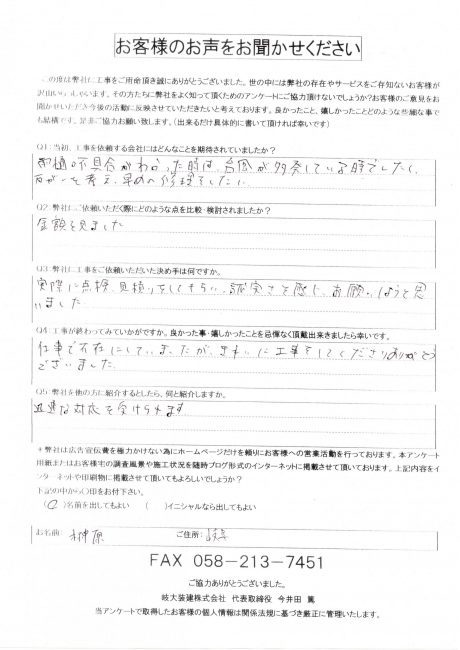 お客様のお声をお聞かせください
この度は弊社に工事をご用命頂き誠にありがとうございました。世の中には弊社の存在やサービスをご存知ないお客様が
沢山いらっしゃいます。その方たちに弊社をよく知って頂くためのアンケートにご協力頂けないでしょうか?お客様のご意見をお
聞かせいただき今後の活動に反映させていただきたいと考えております。良かったこと、嬉しかったことどのような些細な事で
も結構です。是非ご協力お願い致します。(出来るだけ具体的に書いて頂ければ幸いです)
Q1:当初、工事を依頼する会社にはどんなことを期待されていましたか?
雨樋の不具合がわかった時は、台風が多発している時でしたし、
万が一を考え、早めの修理をしたい
Q2:弊社にご依頼いただく際にどのような点を比較・検討されましたか?
金額を見ました
Q3:弊社に工事をご依頼いただいた決め手は何ですか。
実際に点検、見積りをしてもらい、誠実さを感じ、お願いしようと思
いました
Q4:工事が終わってみていかがですか。良かった事・嬉しかったことを忌憚なく頂戴出来きましたら幸いです。
仕事で不在にしていましたが、きれいに工事をしてくださりありがとう
ございました
Q5:弊社を他の方に紹介するとしたら、何と紹介しますか。
迅速な対応を受けられます
*弊社は広告宣伝費を極力かけない為にホームページだけを頼りにお客様への営業活動を行っております。本アンケート
用紙またはお客様宅の調査風景や施工状況を随時ブログ形式のインターネットに掲載させて頂いております。上記内容をイン
ターネットや印刷物に掲載させて頂いてもよろしいでしょうか?
下記の中から〇印をお付下さい。
(〇)名前を出してもよい ( )イニシャルなら出してもよい
お名前: 榊原 ご住所:
FAX 058-213-7451
ご協力ありがとうございました。
岐大装建株式会社 代表取締役 今井田 篤
当アンケートで取得したお客様の個人情報は関係法規に基づき厳正に管理いたします。